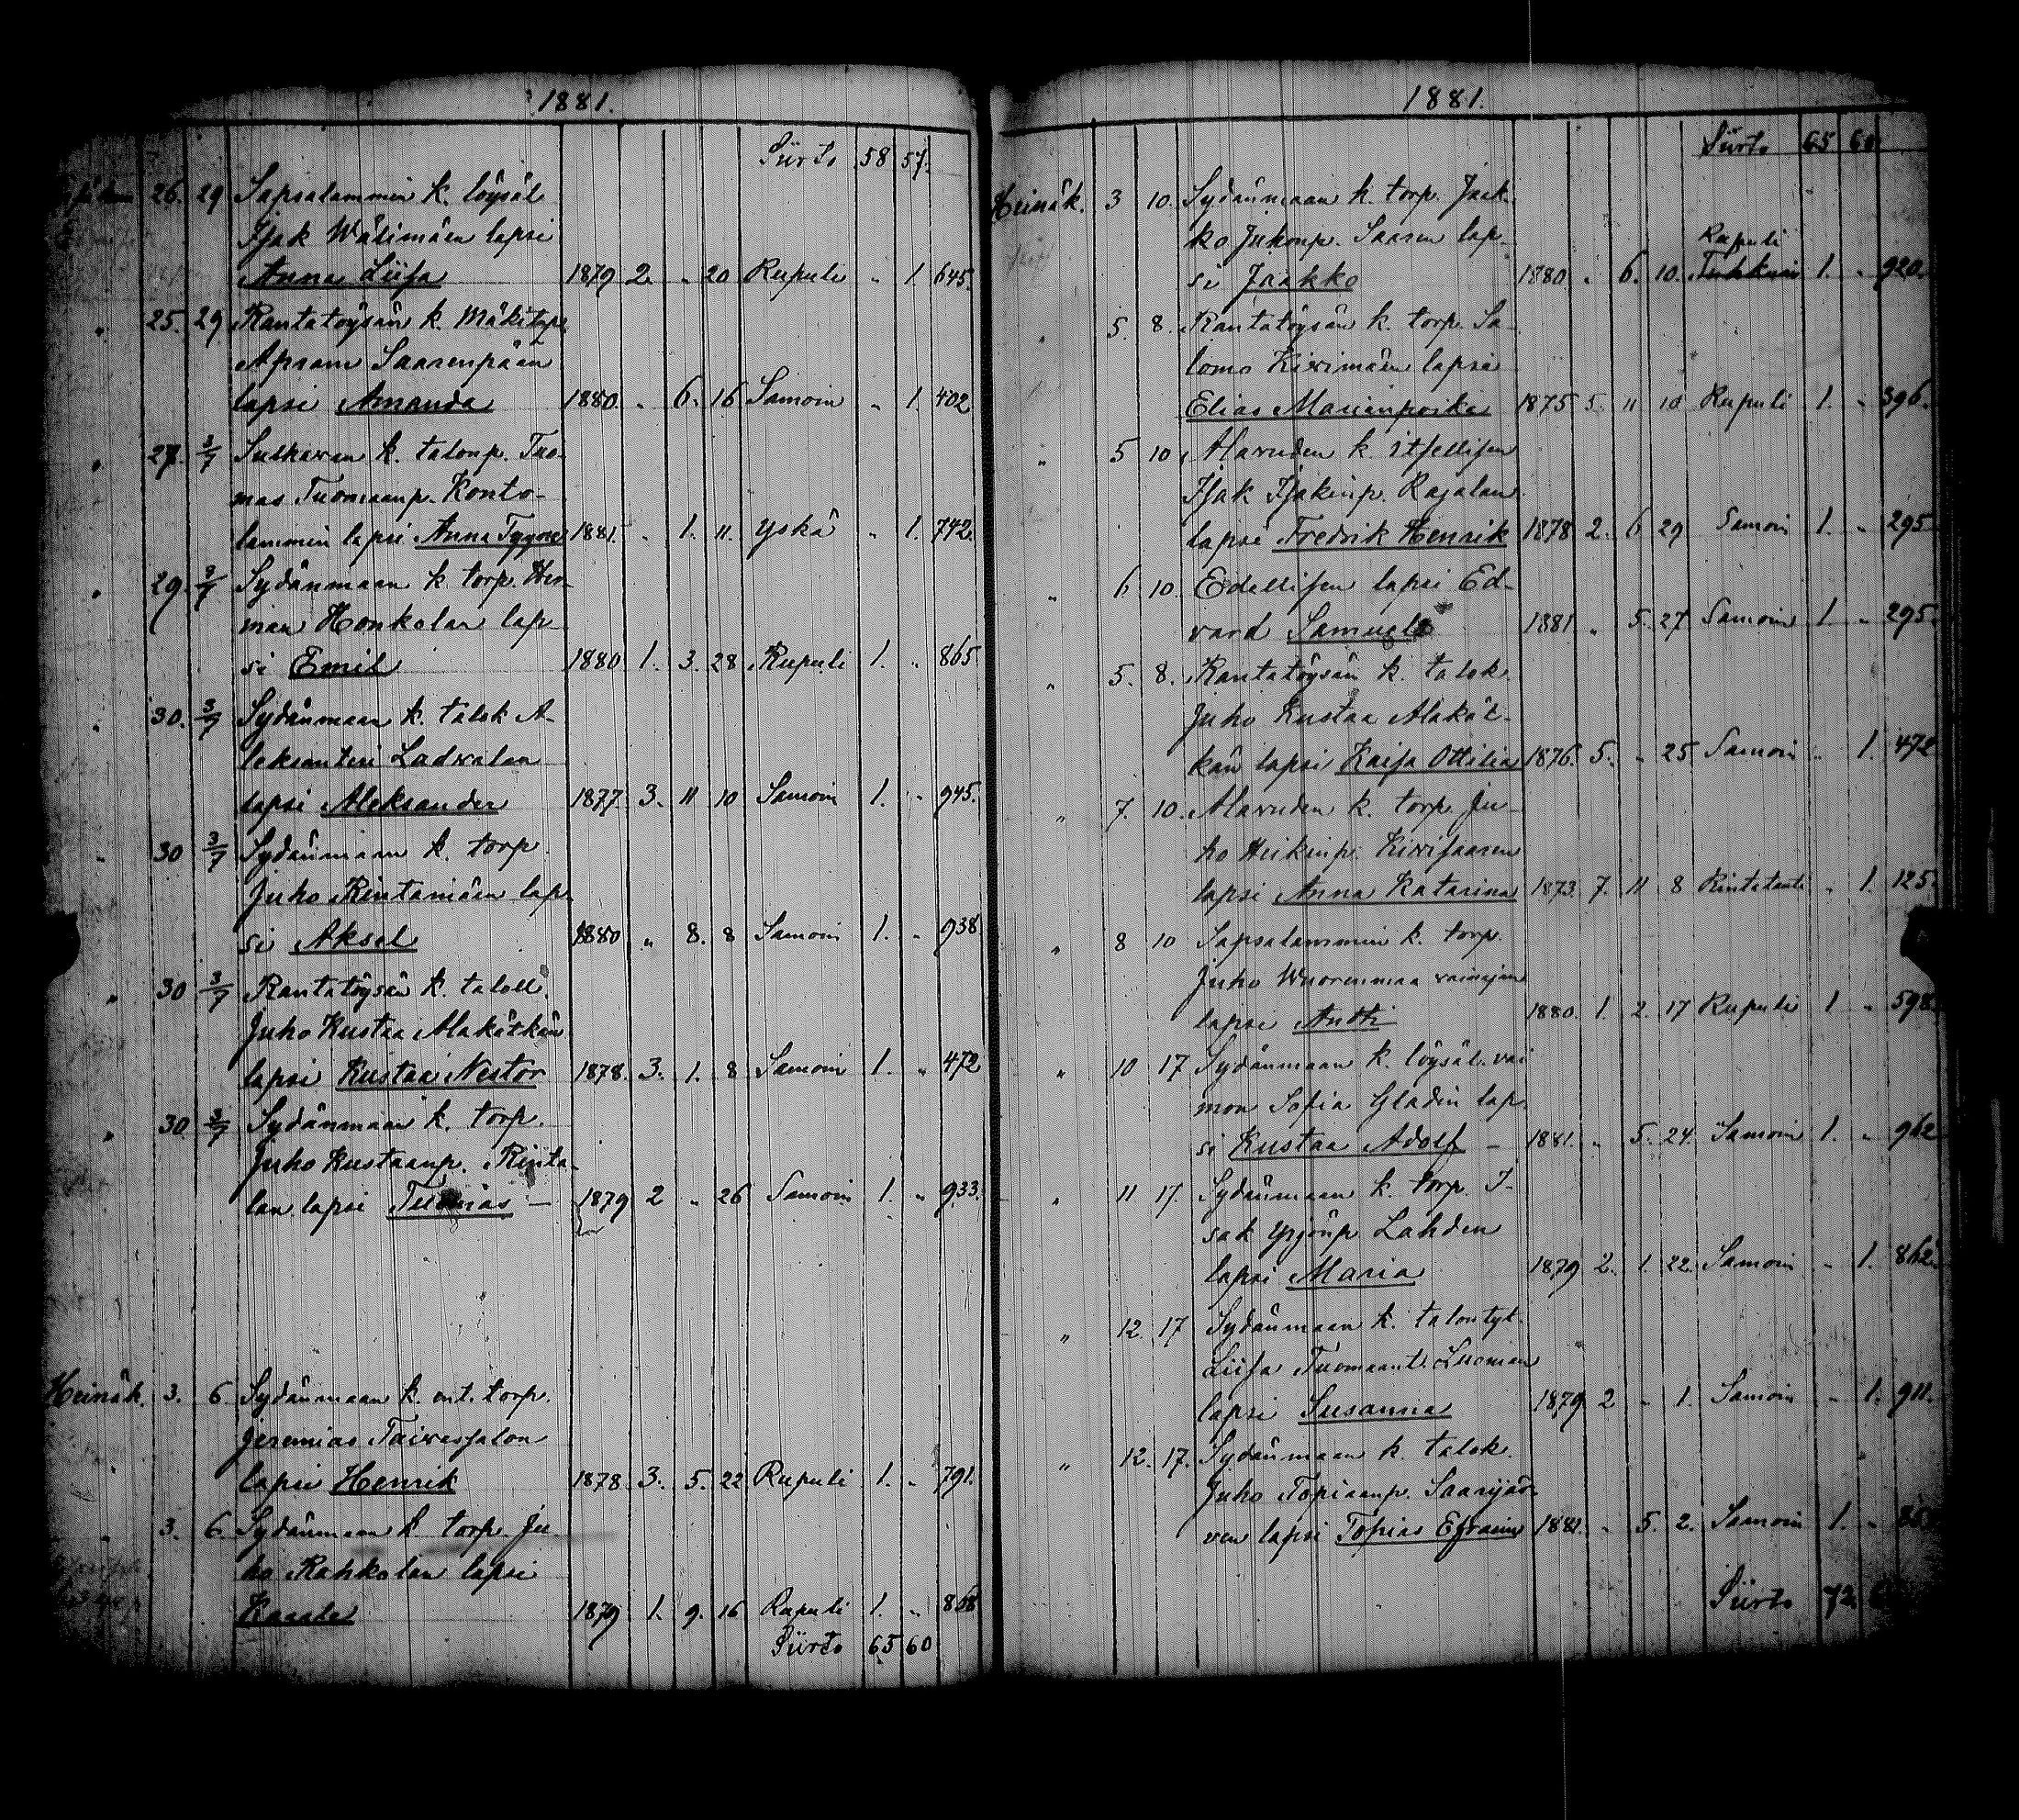 1881.
Siirto 58 57.
26. 29 Sapsalammin k. löysäl
Isak Wälimäen lapsi
Anna Liisa 1879 2. „ 20 Rupuli „ 1. 645.
„ 25. 29 Rantatöysän k. Mäkitup.
Apram Saarenpään
lapsi Amanda 1880. „ 6. 16 Samoin „ 1. 402
„ 27. 3/7 Sulkavan k. talonp. Tuo-
mas Tuomaanp. Konto-
lammin lapsi Anna 1881. „ 1. 11. Yskä „ 1. 742.
„ 29. 3/7 Sydänmaan k. torp. Her-
man Honkolan lap-
si Emil 1880 1. 3. 28 Rupuli 1. „ 865
„ 30. 3/7 Sydänmaan k. talok A-
leksanteri Ladvalan
lapsi Aleksander 1877. 3. 11 10 Samoin 1. „ 945.
„ 30 3/7 Sydänmaan k. torp.
Juho Rintamäen lap-
si Aksel 1880 „ 8. 8 Samoin 1. „ 938
„ 30 3/7 Rantatöysän k. taloll.
Juho Kustaa Alakätkän
lapsi Kustaa Nestor 1878. 3. 1. 8 Samoin 1. „ 472
„ 30 3/7 Sydänmaan k. torp.
Juho Kustaanp. Rinta-
lan lapsi Tuomas — 1879 2 „ 26 Samoin 1. „ 933.
Heinäk. 3. 6. Sydänmaan k. ent. torp.
Jeremias Taivassalon
lapsi Henrik 1878. 3. 5. 22 Rupuli 1. „ 791.
„ 3. 6. Sydänmaan k torp. Ju-
ho Rahkolan lapsi
Kaarle 1879 1. 9. 16 Rupuli 1. „ 868
Siirto 65 60
1881.
Siirto 65 60
Heinäk. 3 10. Sydänmaan k. torp. Jaak-
ko Juhonp. Saaren lap-
Rupuli
si Jaakko 1880. „ 6. 10. Tuhkuri 1. „ 920.
„ 5. 8. Rantatöysän k. torp. Sa-
lomo Kivimäen lapsi
Elias Marianpoika 1875 5. 11 10 Rupuli 1. „ 396.
„ 5 10 Alavuden k. itsellisen
Isak Isakinp. Rajalan
lapsi Fredrik Henrik 1878 2. 6 29 Samoin 1. „ 295
„ 6 10. Edellisen lapsi Ed-
vard Samuel 1881 „ 5. 27 Samoin 1. „ 295.
„ 5. 8. Rantatöysän k. talok.
Juho Kustaa Alakät-
kän lapsi Kaisa Ottilia 1876. 5. „ 25 Samoin „ 1. 472
„ 7. 10. Alavuden k. torp. Ju-
ho Heikinp. Kivisaaren
lapsi Anna Katarina 1873. 7. 11 8 Rintatauti „ 1. 125.
„ 8 10 Sapsalammin k. torp.
Juho Wuorenmaa vainajan
lapsi Antti 1880. 1. 2. 17 Rupuli 1 „ 598
„ 10 17 Sydänmaan k. löysäl. vai
mon Sofia Gladin lap-
si Kustaa Adolf — 1881. „ 5. 24. Samoin 1. „ 962
„ 11 17. Sydänmaan k. torp. I-
sak Yrjönp Lahden
lapsi Maria 1879 2. 1. 22. Samoin „ 1. 862.
„ 12. 17 Sydänmaan k. talontyt.
Liisa Tuomaant. Luoman
lapsi Susanna 1879 2 „ 1. Samoin „ 1. 911.
„ 12. 17. Sydänmaan k. talok.
Juho Topiaanp. Saarijär-
ven lapsi Topias Efraim 1881. „ 5. 2. Samoin 1. „
Siirto 72